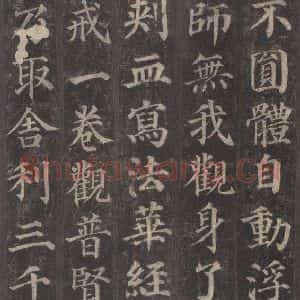 不圓體自動浮
師無我觀身了
刺血寫法華經
戒一卷觀普賢
乃取舍利三千
Shufawang.Cn